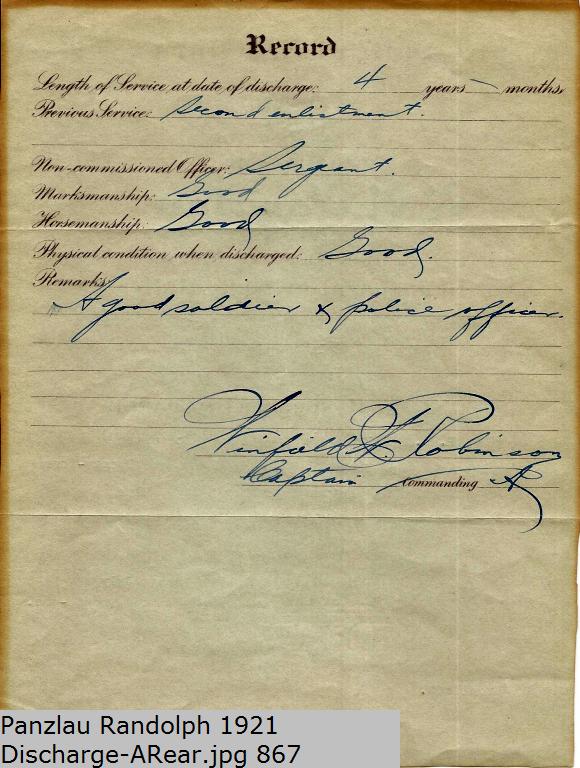 Record
Length of Service at date of discharge: 4 years - months.
Previous Service: Second enlistment.
Non-commissioned Officer: Sergant.
Marksmanship: Good
Horsemanship: Good
Physical condition when discharged: Good.
Remarks
A good soldier & police officer.
Winfield F. Robinson
Captain commanding A
Panzlau Randolph 1921
Discharge-ARear.jpg 867